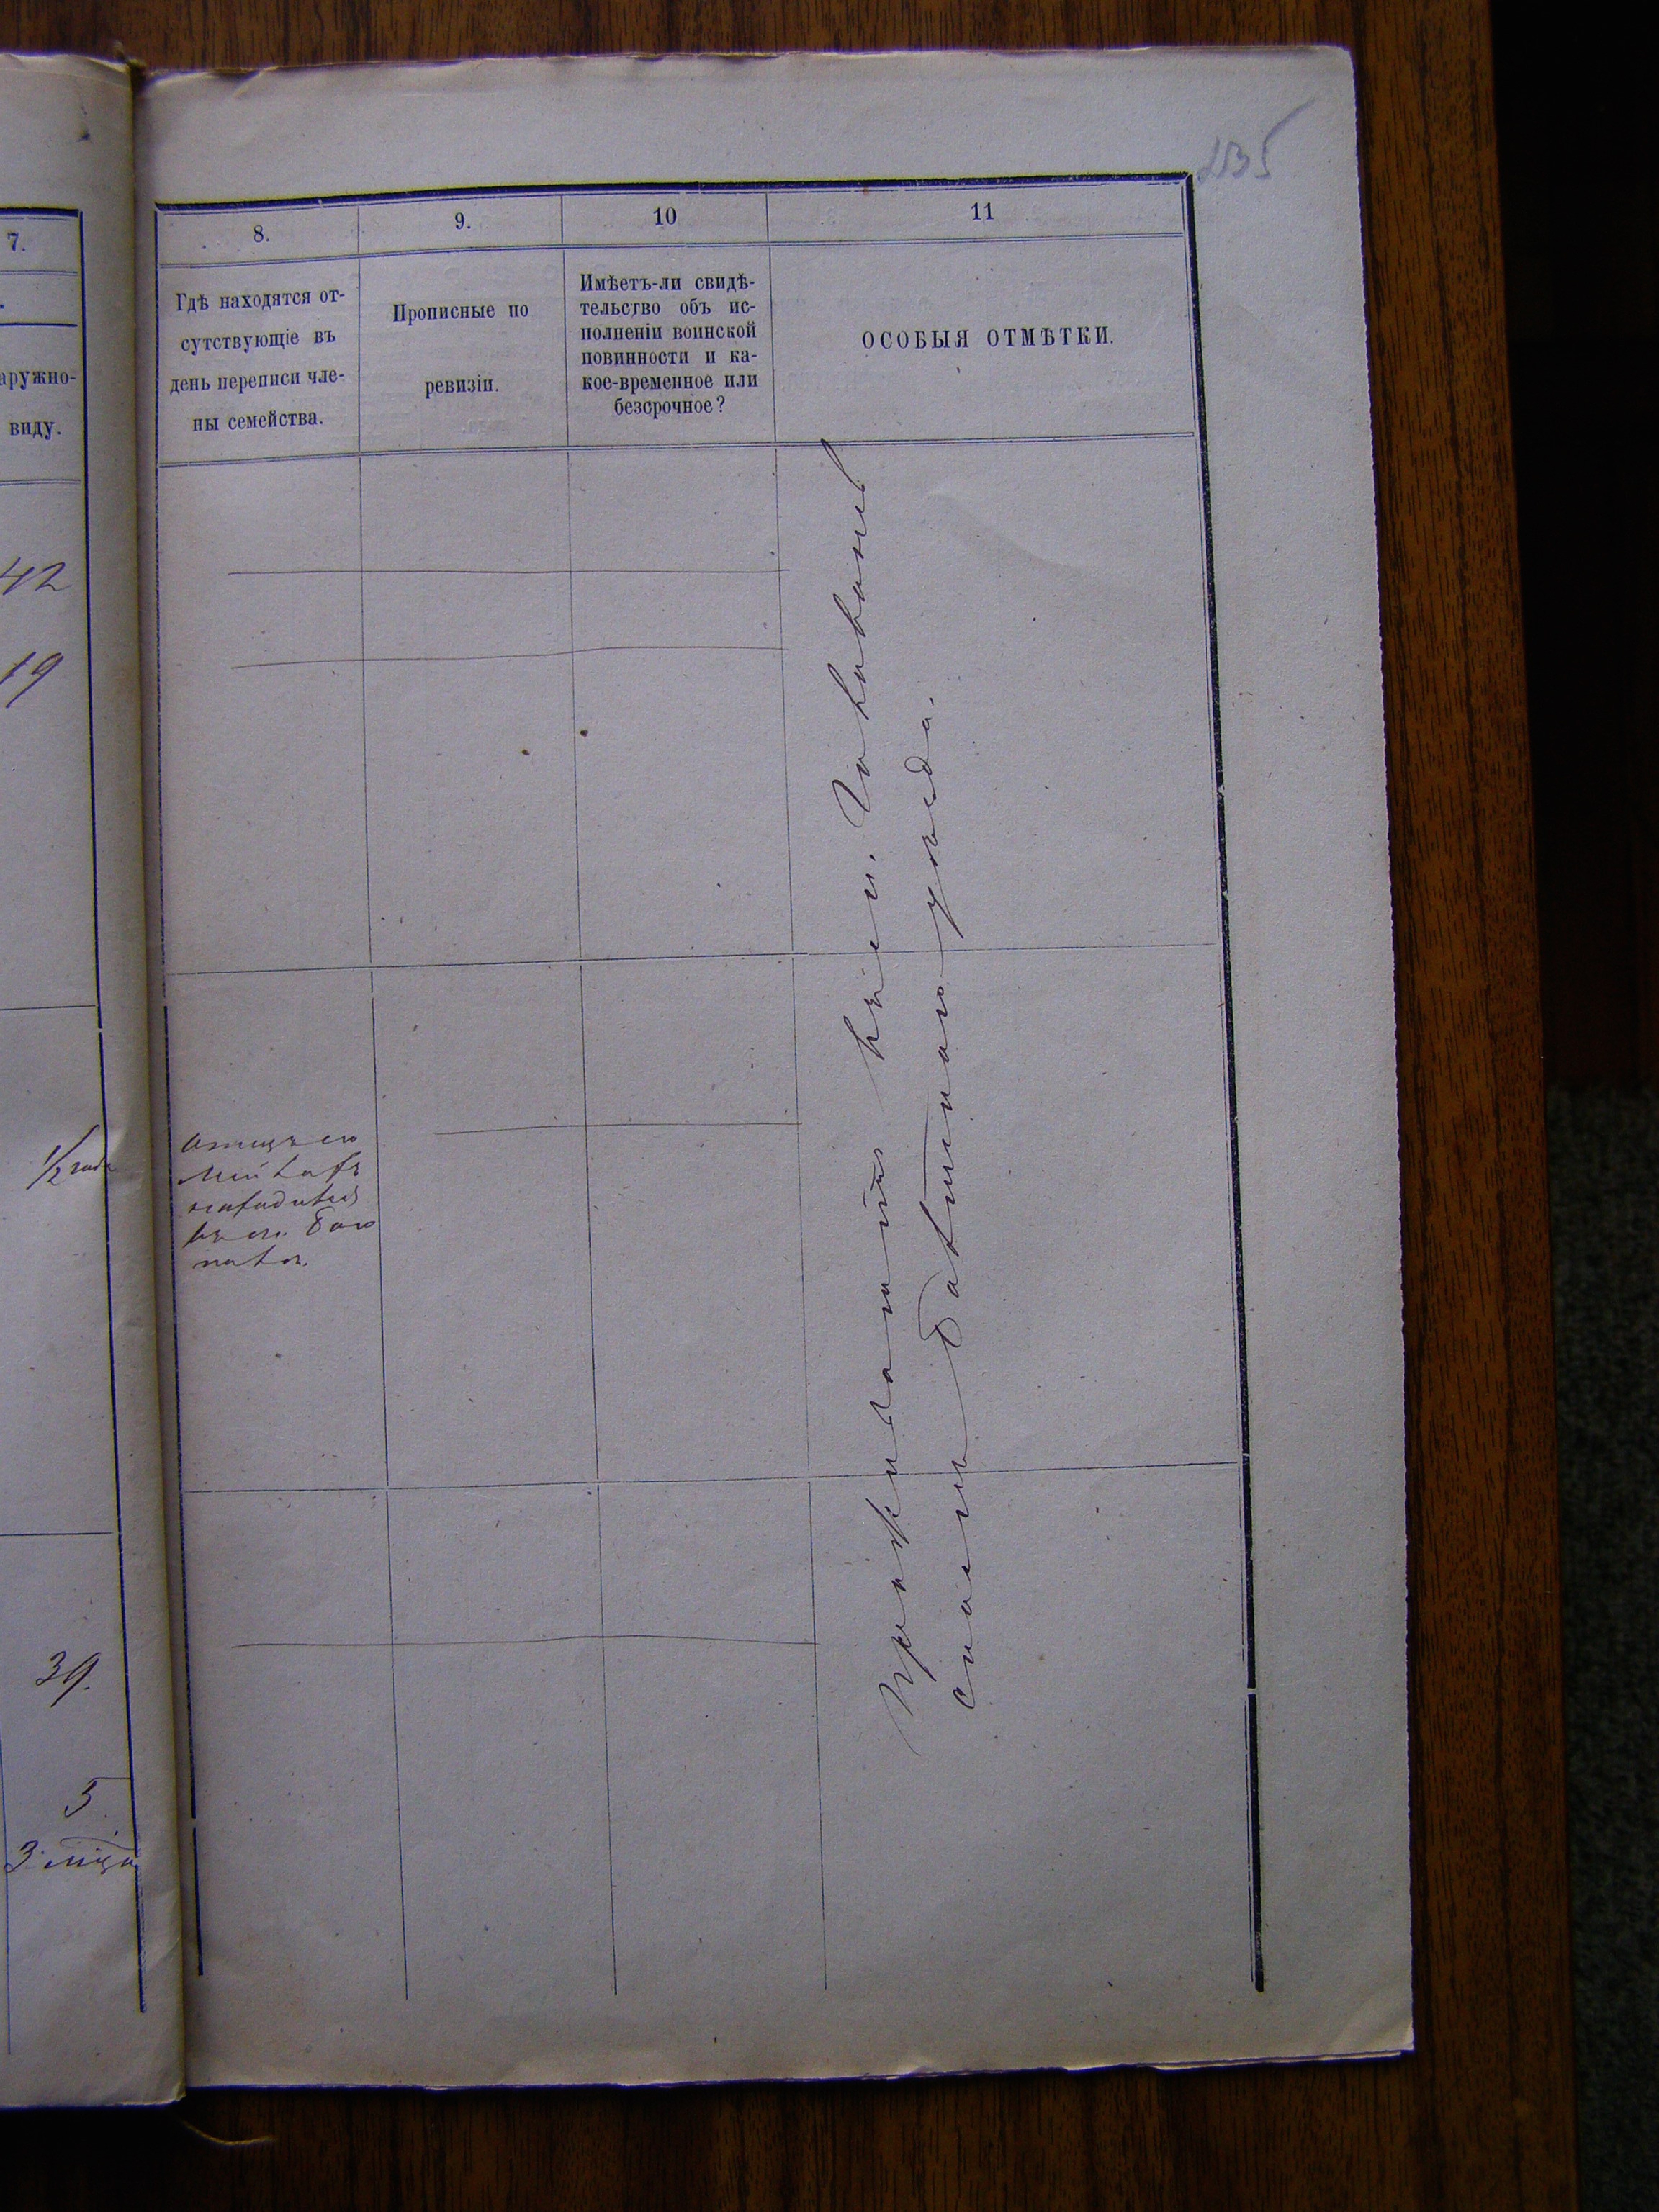 135
7.
8.
9.
10
11
аружно-
виду.
Гдѣ находятся от-
сутствующіе въ
день переписи чле-
ны семейства.
Прописные по
ревизіи.
Имѣетъ-ли свидѣ-
тельство объ ис-
полненіи воинской
повинности и ка-
кое-временное или
безсрочное?
ОСОБЫЯ ОТМѢТКИ.
42
19
1/2 года
39.
5
3 мѣся
отецъ его
находится
въ м.
Проживаютъ въ м.
уѣзда.